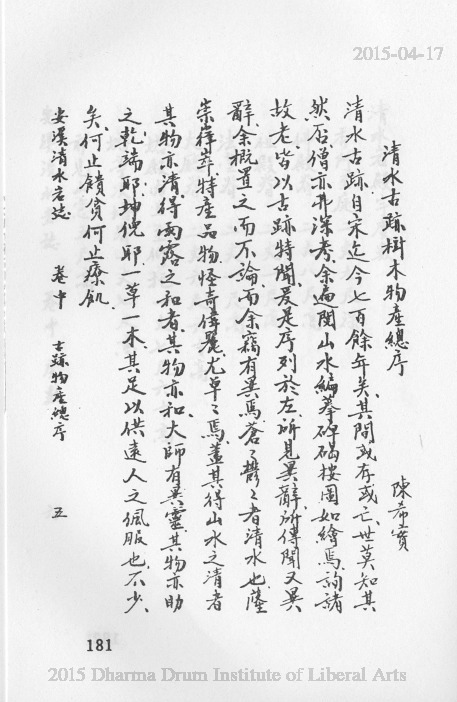 2015-04-17
清水古跡樹木物產總序
陳希實
清水古跡自宋迄今七百餘年矣其間或存或亡世莫知其
然居僧亦升深考余遍閱山水編摹碑碣按圖如繪焉詢諸
故老皆以古跡特聞爰是序列於左所見異辭所傳聞又異
辭余概置之而不論而余竊有異焉蒼々鬱々者清水也隆
崇嵂崒特產品物怪奇偉麗尤卓々焉蓋其得山水之清者
其物亦清得雨露之和者其物亦和大師有異靈其物亦助
之乾端耶坤倪耶一草一木其足以供遠人之佩服也不少
矣何止饋貧何止療飢
安溪清水岩誌 卷中 古跡物產總序 五
181
2015 Dharma Drum Institute of Liberal Arts